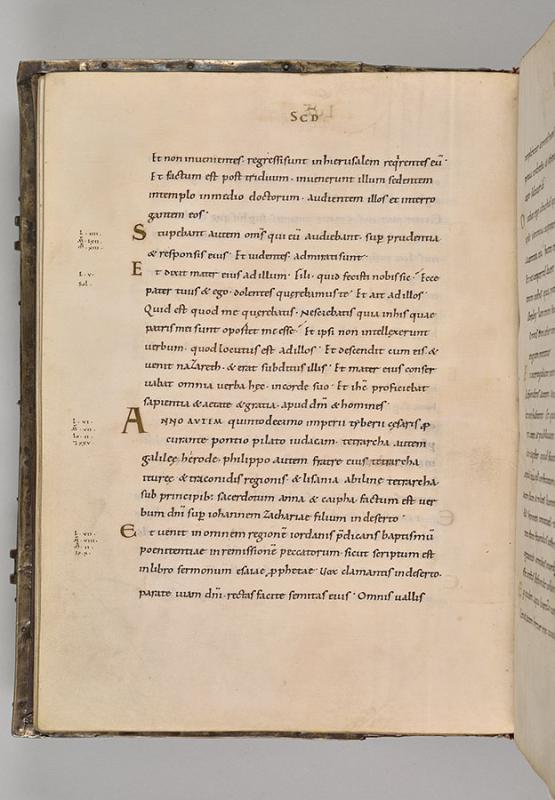 SCD
Et non invenientes · regressi sunt in hierusalem reqrentes eu ·
Et factum est post triduum · invenerunt illum sedentem
in templo in medio doctorum · audientem illos et interro
gantem eos ·
Stupebant autem oms qui eu audiebant · sup prudentia
& responsis eius · Et videntes admirati sunt ·
Et dixit mater eius ad illum · Fili · quid fecisti nobis sic · Ecce
pater tuus & ego · dolentes querebamus te · Et ait ad illos ·
Quid est quod me querebatis · Nesciebatis quia in his quae
patris mei sunt oportet me esse · Et ipsi non intellexerunt
verbum · quod locutus est ad illos · Et descendit cum eis · &
venit nazareth · & erat subditus illis · Et mater eius conser
vabat omnia verba hec · in corde suo · Et ihc proficiebat
sapientia & aetate & gratia · apud dm & homines ·
ANNO AUTEM quintodecimo imperii tyberii cesaris p
curante pontio pilato iudaeam · tetrarcha autem
galilee herode · philippo autem fratre eius tetrarcha
ituree & traconidis regionis · & lisania abiline tetrarcha
sub principib: sacerdotum anna & caipha · factum est ver
bum dni sup iohannem zachariae filium in deserto ·
Et venit in omnem regione iordanis pdicans baptismu
poenitentiae in remissione peccatorum · sicut scriptum est
in libro sermonum esaiae pphetae · Vox clamantis in deserto ·
parate viam dni · rectas facite semitas eius · Omnis vallis